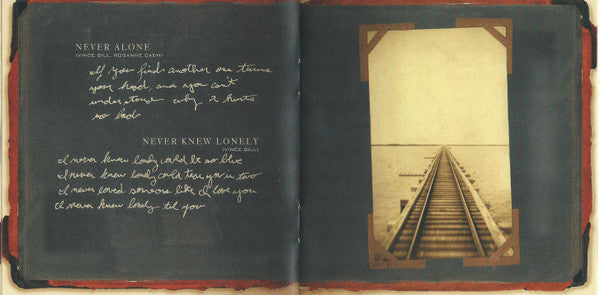 NEVER ALONE
(VINCE GILL, ROSANNE CASH)
If you find another one turns
your head, and you can't
understand why it hurts
so bad
NEVER KNEW LONELY
(VINCE GILL)
I never knew lonely could be so blue
I never knew lonely could tear you in two
I never loved someone like I love you
I never knew lonely til you